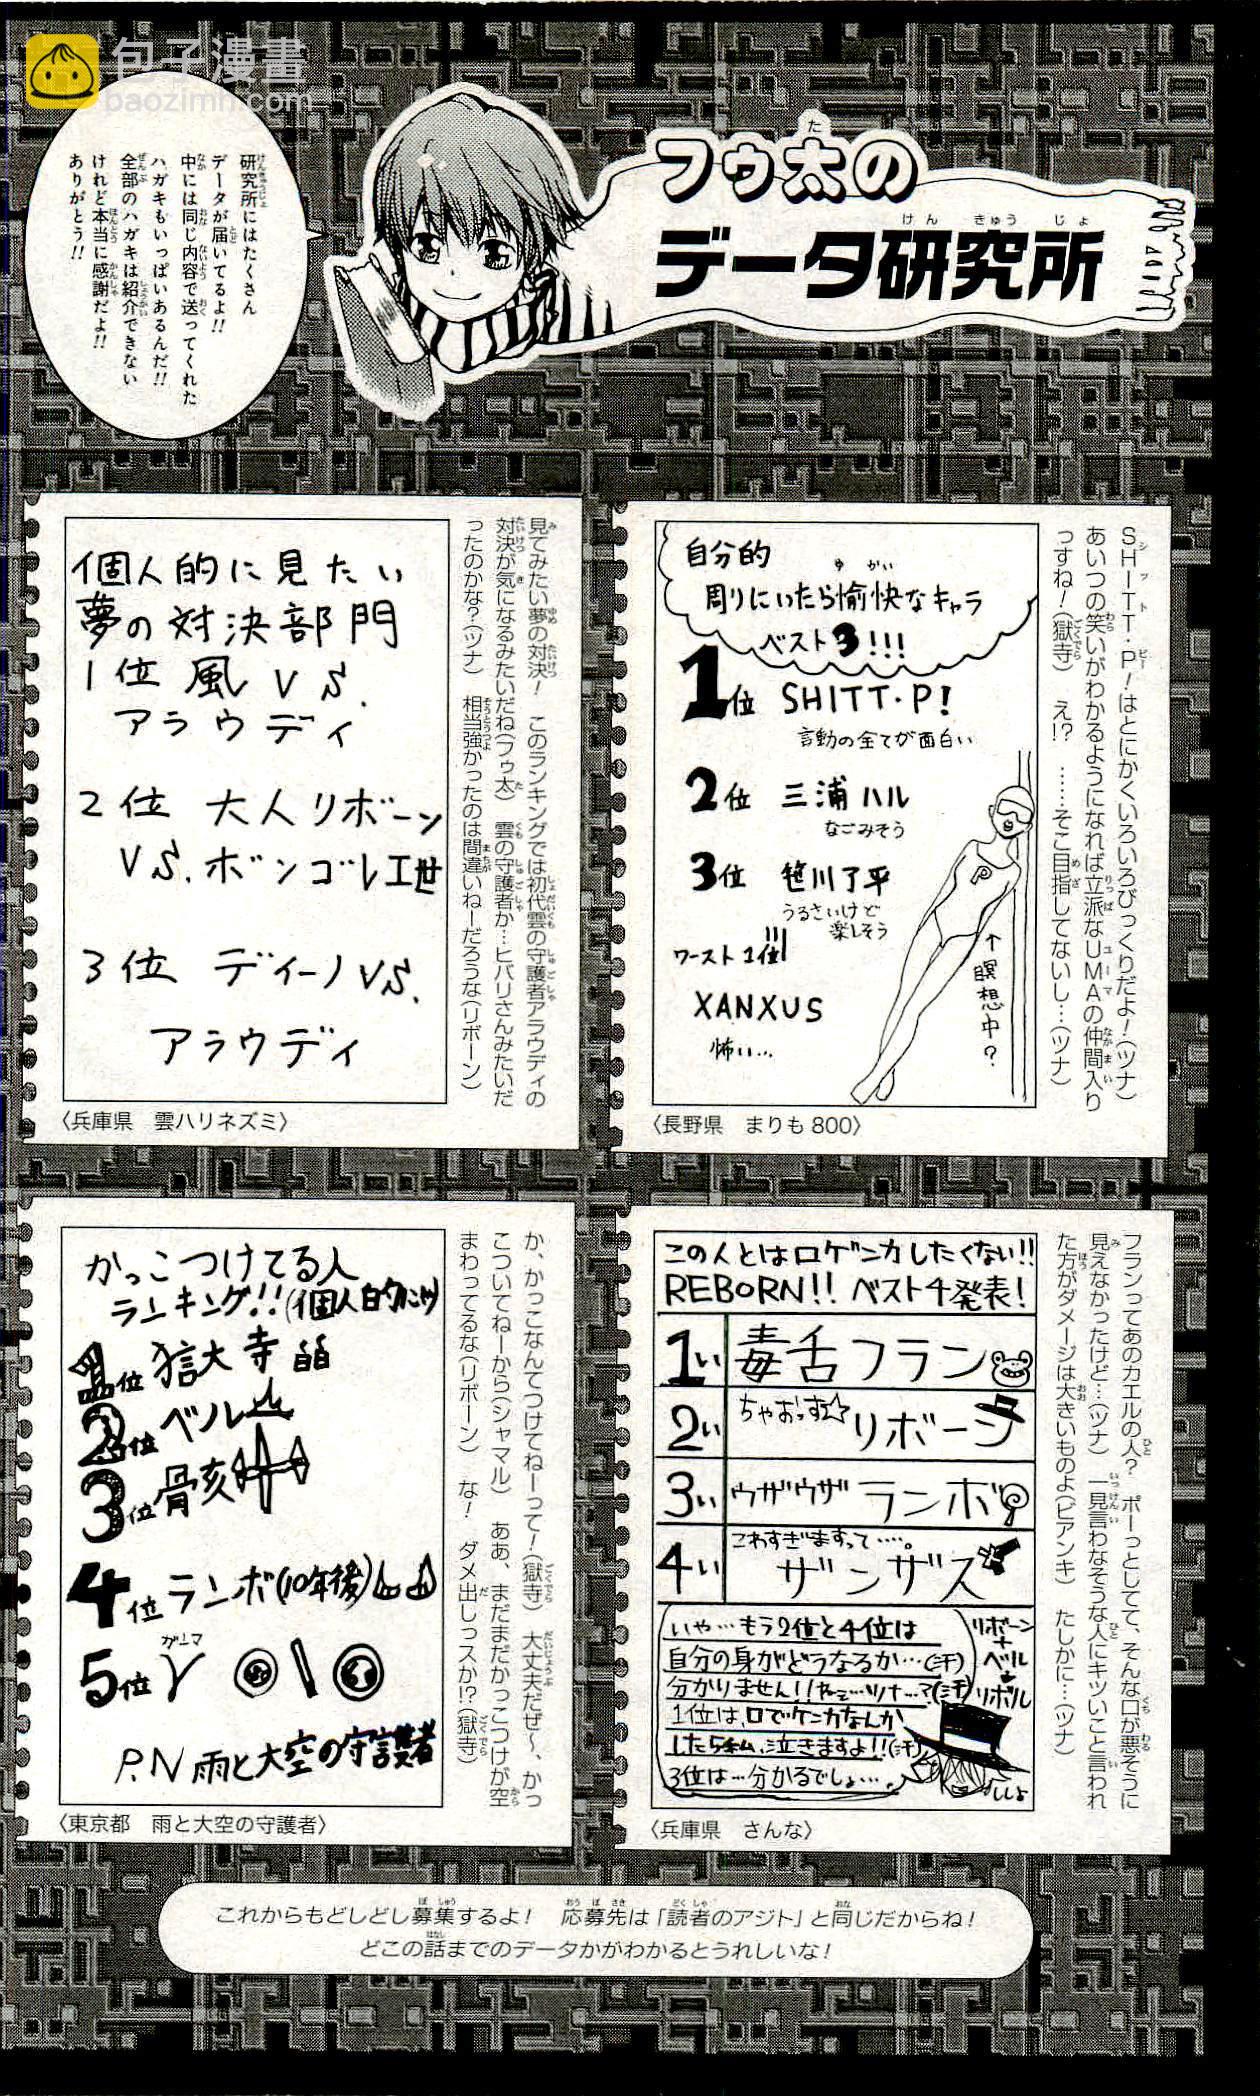 包子漫畫
baozimh.com
フゥ太の
データ研究所
研究所にはたくさん
データが届いてるよ!!
中には同じ内容で送ってくれた
ハガキもいっぱいあるんだ!!
全部のハガキは紹介できない
けれど本当に感謝だよ!!
ありがとう!!
自分的
周りにいたら愉快なキャラ
ベスト3!!!
1位 SHITT・P!
言動の全てが面白い
2位 三浦ハル
なごみそう
3位 笹川了平
うるさいけど
楽しそう
ワースト1位!!
XANXUS
怖い…
↑瞑想中?
SHITT・P!はとにかくいろいろびっくりだよ!(ツナ)
あいつの笑いがわかるようになれば立派なUMAの仲間入り
っすね!(獄寺) え!? ……そこ目指してないし…(ツナ)
〈長野県 まりも800〉
個人的に見たい
夢の対決部門
1位 風VS.
アラウディ
2位 大人リボーン
VS.ボンゴレI世
3位 ディーノVS.
アラウディ
見てみたい夢の対決! このランキングでは初代雲の守護者アラウディの
対決が気になるみたいだね(フゥ太) 雲の守護者か…ヒバリさんみたいだ
ったのかな?(ツナ) 相当強かったのは間違いねーだろうな(リボーン)
〈兵庫県 雲ハリネズミ〉
この人とは口ゲンカしたくない!!
REBORN!! ベスト4発表!
1い 毒舌フラン
2い ちゃおっす☆ リボーン
3い ウザウザ ランボ
4い こわすぎますって…。
ザンザス
いや…もう2位と4位は
自分の身がどうなるか…(汗)
分かりません!!ねこ…ツナ…?(汗)
1位は、口ゲンカなんか
した5私、泣きますよ!!(汗)
3位は…分かるでしょ…。
リボーン
+
ベル
リボル
フランってあのカエルの人? ポーっとしてて、そんな口が悪そうに
見えなかったけど…(ツナ) 一見言わなそうな人にキツいこと言われ
た方がダメージは大きいものよ(ビアンキ) たしかに…(ツナ)
〈兵庫県 さんな〉
かっこつけてる人
ランキング!!(個人的に)
1位 獄寺
2位 ベル
3位 骸
4位 ランボ(10年後)
5位 γ
ガンマ
P.N 雨と大空の守護者
か、かっこなんてつけてねーって!(獄寺) 大丈夫だぜ〜、かっ
こついてねーから(シャマル) ああ、まだまだかっこつけが空
まわってるな(リボーン) な! ダメ出しっスか!?(獄寺)
〈東京都 雨と大空の守護者〉
これからもどしどし募集するよ! 応募先は「読者のアジト」と同じだからね!
どこの話までのデータかがわかるとうれしいな!